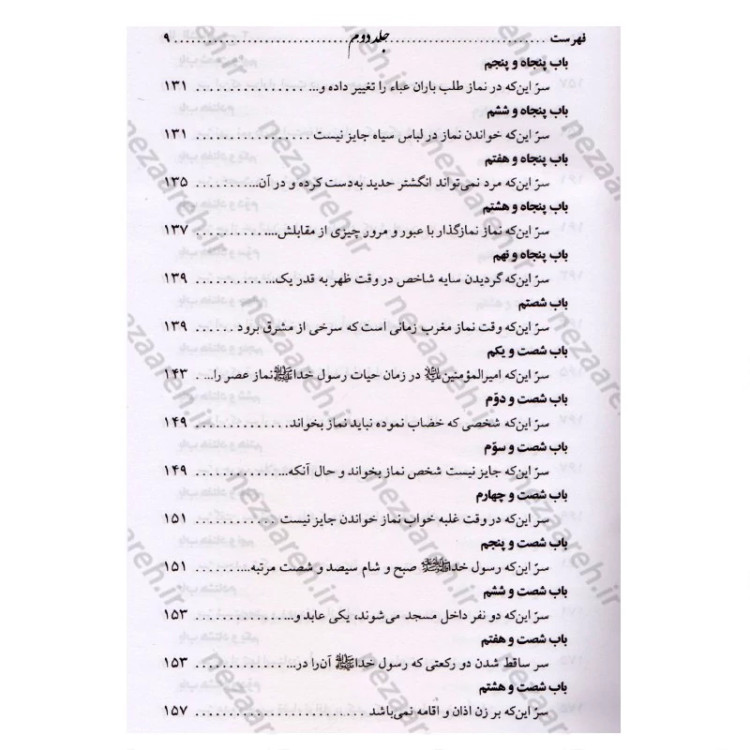 فهرست ........................ جلد دوم ........................ ۹
باب پنجاه و پنجم
سرّ این‌که در نماز طلب باران عباء را تغییر داده و... ................ ۱۳۱
باب پنجاه و ششم
سرّ این‌که خواندن نماز در لباس سیاه جایز نیست ................ ۱۳۱
باب پنجاه و هفتم
سرّ این‌که مرد نمی‌تواند انگشتر حدید به‌دست کرده و در آن............. ۱۳۵
باب پنجاه و هشتم
سرّ این‌که نماز نمازگذار با عبور و مرور چیزی از مقابلش.............. ۱۳۷
باب پنجاه و نهم
سرّ این‌که گردیدن سایه شاخص در وقت ظهر به قدر یک............. ۱۳۹
باب شصتم
سرّ این‌که وقت نماز مغرب زمانی است که سرخی از مشرق برود ...... ۱۳۹
باب شصت و یکم
سرّ این‌که امیرالمؤمنین در زمان حیات رسول خداﷺ نماز عصر را... . ۱۴۳
باب شصت و دوّم
سرّ این‌که شخصی که خضاب نموده نباید نماز بخواند................. ۱۴۹
باب شصت و سوّم
سرّ این‌که جایز نیست شخص نماز بخواند و حال آنکه............... ۱۴۹
باب شصت و چهارم
سر این‌که در وقت غلبه خواب نماز خواندن جایز نیست ............ ۱۵۱
باب شصت و پنجم
سرّ این‌که رسول خداﷺ صبح و شام سیصد و شصت مرتبه............ ۱۵۱
باب شصت و ششم
سرّ این‌که دو نفر داخل مسجد می‌شوند، یکی عابد و............. ۱۵۳
باب شصت و هفتم
سر ساقط شدن دو رکعتی که رسول خداﷺ آن‌را در............... ۱۵۳
باب شصت و هشتم
سرّ این‌که بر زن اذان و اقامه نمی‌باشد ......................... ۱۵۷
nezaareh.ir